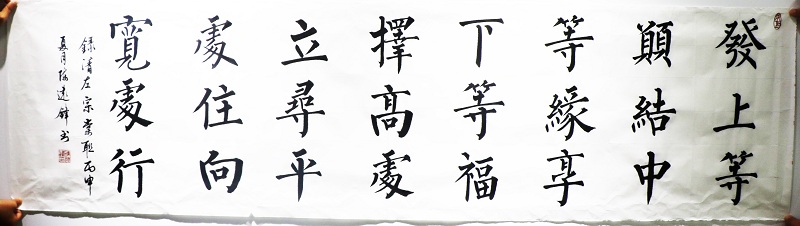 發上等
願結中
等緣享
下等福
擇高處
立尋平
處住向
寬處行
録清左宗棠聯丙申
夏月遠書